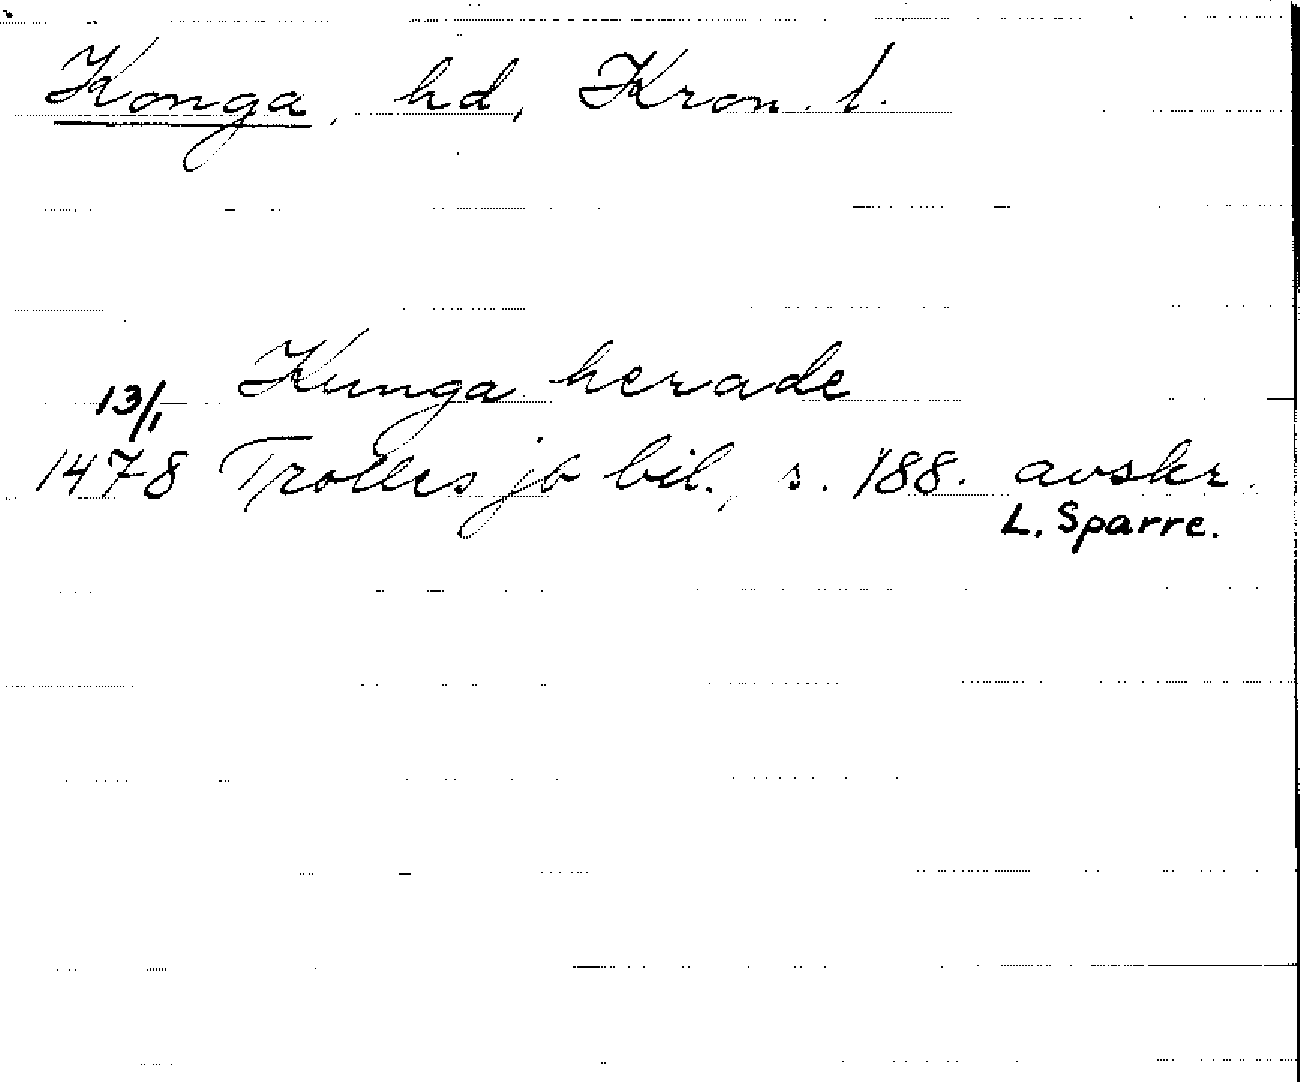 Konga, hd, Kron. l.
Kunga herade
13/1
1478 Trolles jb bil., s. 188. avskr.
L. Sparre.